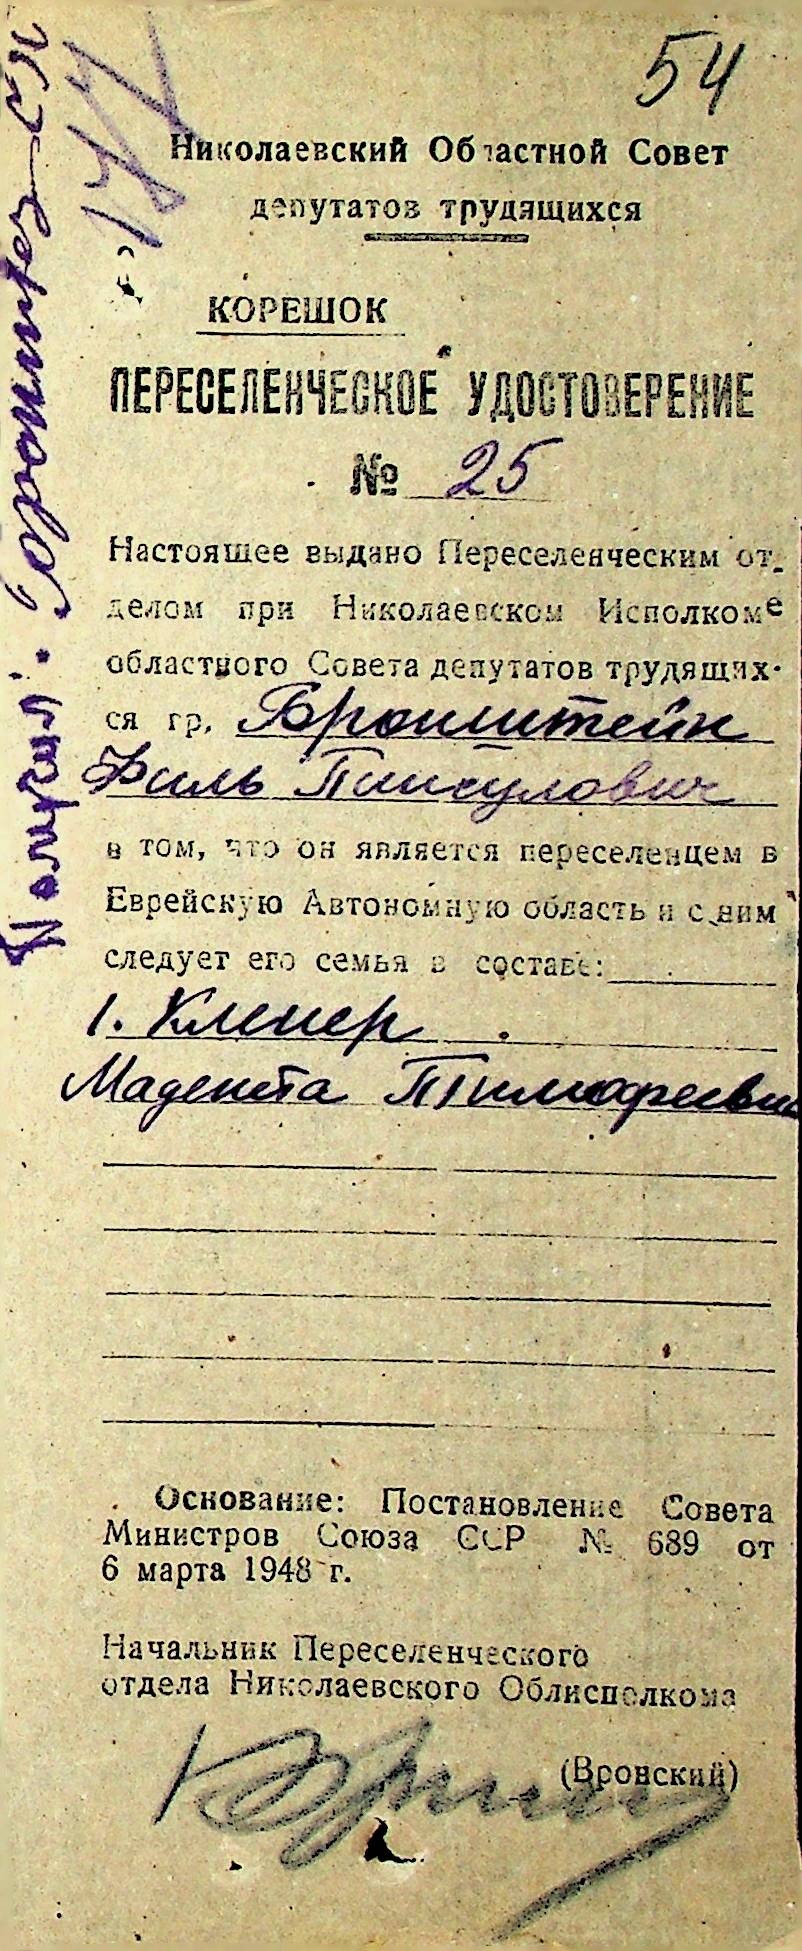 54
Николаевский Областной Совет
депутатов трудящихся
КОРЕШОК
ПЕРЕСЕЛЕНЧЕСКОЕ УДОСТОВЕРЕНИЕ
№ 25
Настоящее выдано Переселенческим от-
делом при Николаевском Исполкоме
областного Совета депутатов трудящих-
ся гр. Бронштейн
Филь
в том, что он является переселенцем в
Еврейскую Автономную область и с ним
следует его семья в составе:
1. Клепер
Тимофеевна
Основание: Постановление Совета
Министров Союза ССР № 689 от
6 марта 1948 г.
Начальник Переселенческого
отдела Николаевского Облисполкома
(Вровский)
Получил: Бронштейн